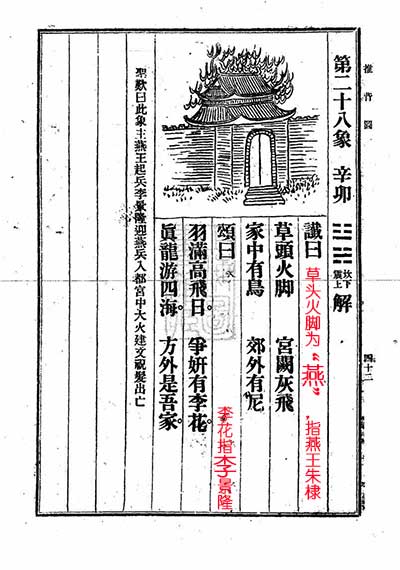 推背圖
四十二
第二十八象 辛卯
坎下
震上
解
讖曰
草头火脚为
“燕”
,指燕王朱棣
草頭火脚 宮闕灰飛
家中有鳥 郊外有尼
頌曰
李花指李景隆
羽滿高飛日。爭妍有李花。
眞龍游四海。方外是吾家。
聖歎曰此象主燕王起兵李景隆迎燕兵入都宮中大火建文祝髮出亡